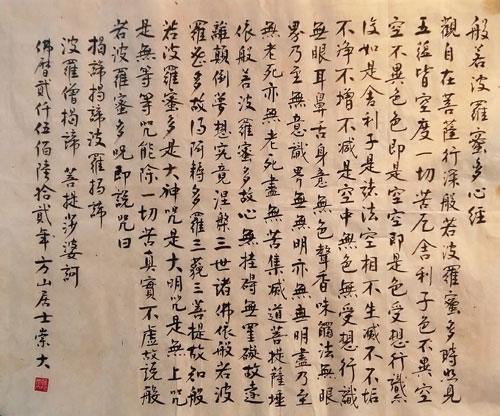 般若波羅蜜多心經
觀自在菩薩行深般若波羅蜜多時照見
五蘊皆空度一切苦厄舍利子色不異空
空不異色色即是空空即是色受想行識
復如是舍利子是諸法空相不生滅不不垢
不淨不增不減是空中無色無受想行識
無眼耳鼻舌身意無色聲香味觸法無眼
界乃至無意識界無無明亦無無明盡乃至
無老死亦無老死盡無苦集滅道菩提薩埵
依般若波羅蜜多故心無挂礙無罣礙故遠
離顛倒夢想究竟涅槃三世諸佛依般若波
羅蜜多故得阿耨多羅三藐三菩提故知般
若波羅蜜多是大神咒是大明咒是無上咒
是無等等咒能除一切苦真實不虛故說般
若波羅蜜多咒即說咒曰
揭諦揭諦波羅揭諦
波羅僧揭諦 菩提莎婆訶
佛曆貳仟伍佰陸拾貳年 方山居士崇大